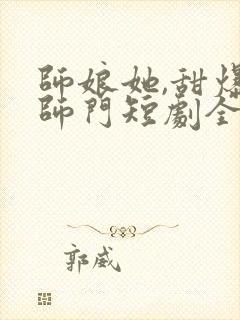 師娘她,甜爆
師門短劇全
郭威